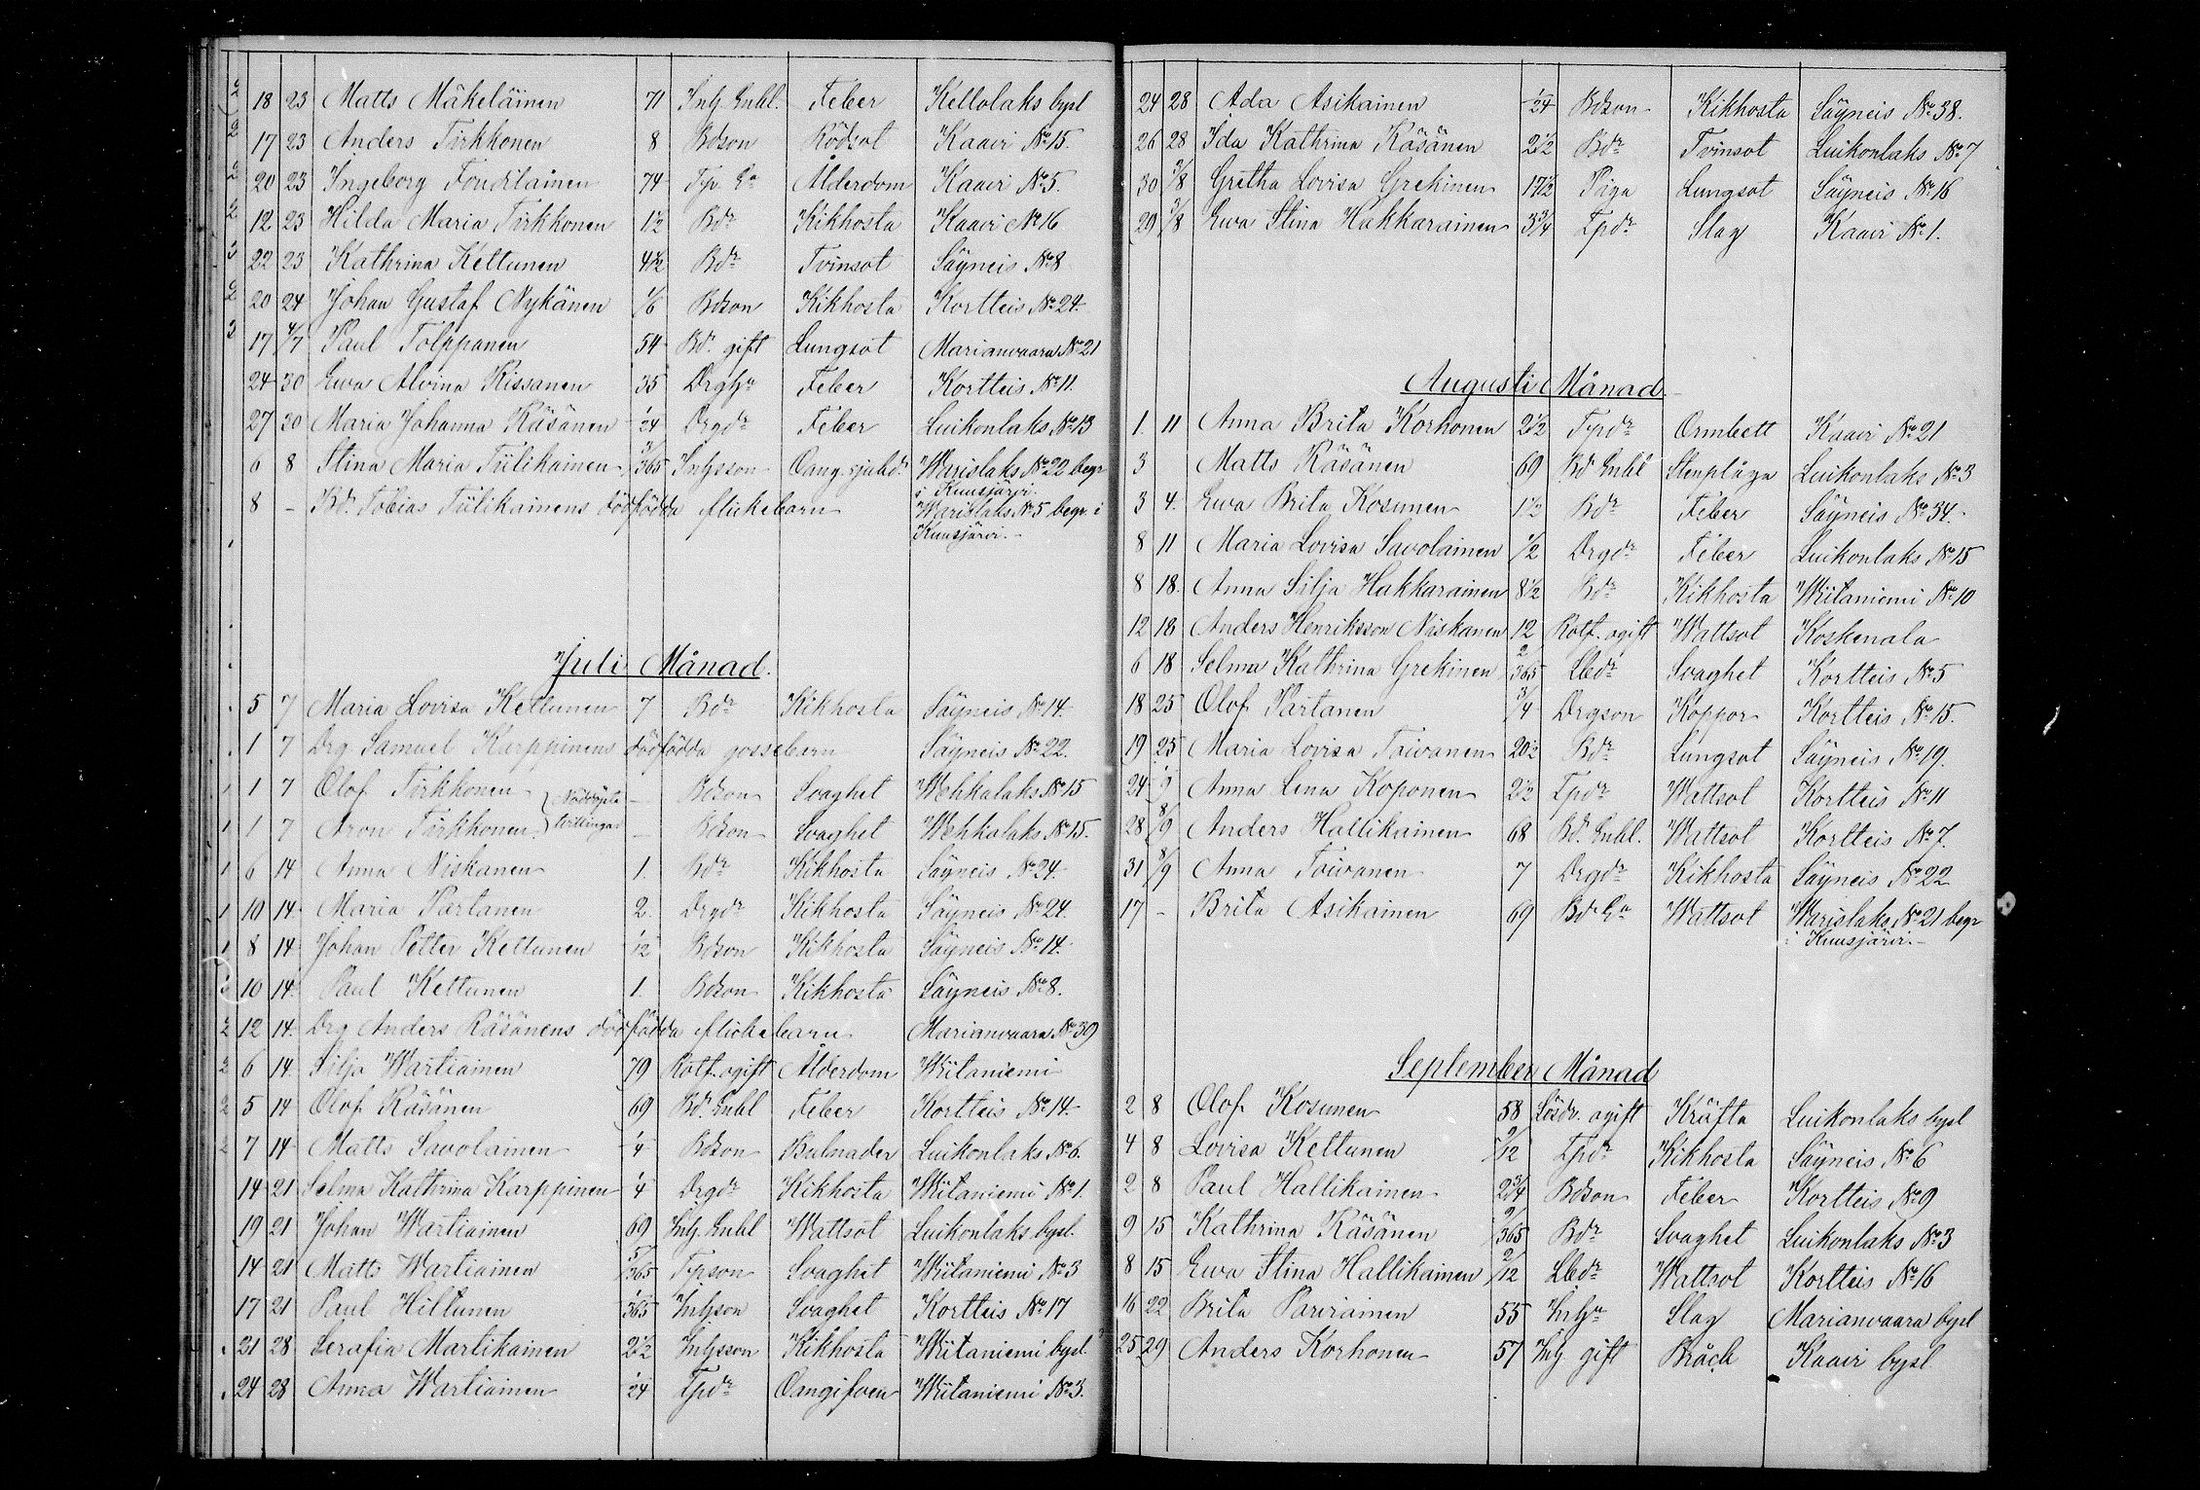 18 23 Matts Mäkeläinen 71 Inh. Enkl. Feber Kellolaks bysl
17 23 Anders Tirkkonen 8 Bdson Rödsot Kaavi No 15.
20 23 Ingeborg Toudilainen 74 Tp. Ea Ålderdom Kaavi No 5.
12 23 Hilda Maria Tirkkonen 1½ Bdr Kikhosta Kaavi No 16
22 23 Kathrina Kettunen 4½ Bdr Tvinsot Säyneis No 8
20 24 Johan Gustaf Nykänen 1/6 Bdson Kikhosta Kortteis No 24.
17 4/7 Paul Tolppanen 54 Bd. gift Lungsot Marianvaara No 21
24 30 Ewa Alvina Kissanen 35 Drghu Feber Kortteis No 11.
27 30 Maria Johanna Räsänen 1/24 Drgdr Feber Luikonlaks No 13
6 8 Stina Maria Tiilikainen 3/365 Inhsson Oang. sjukd. Warislaks No 22 begr
i Kuusjärvi.
8 - Bd. Tobias Tiilikainens dödfödda flickebarn Warislaks No 5 begr. i
Kuusjärvi.-
Juli Månad.
5 7 Maria Lovisa Kettunen 7 Bdr Kikhosta Säyneis No 14.
1 7 Drg Samuel Karppinens dödfödda gossebarn Säyneis No 22.
1 7 Olof Tirkkonen } Nöddöpta - Bdson Svaghet Wehkalaks No 15
1 7 Aron Tirkkonen } tvillingar - Bdson Svaghet Wehkalaks No 15.
6 14 Anna Niskanen 1. Bdr Kikhosta Säyneis No 24.
10 14 Maria Partanen 2. Drgdr Kikhosta Säyneis No 24.
8 14 Johan Petter Kettunen 1/12 Bdson Kikhosta Säyneis No 14.
10 14 Paul Kettunen 1. Bdson Kikhosta Säyneis No 8.
12 14 Drg Anders Räsänens dödfödda flickebarn Marianvaara No 39
6 14 Silja Wartiainen 79 Rotf. ogift Ålderdom Wiitaniemi
5 14 Olof Räsänen 69 Bd. Enkl Feber Kortteis No 14.
7 14 Matts Savolainen 1/4 Bdson Bulnader Luikonlaks No 6.
14 21 Selma Kathrina Karppinen 1/4 Drgdr Kikhosta Wiitaniemi No 1.
19 21 Johan Wartiainen 69 Inh. Enkl Wattsot Luikonlaks bysl.
14 21 Matts Wartiainen 5/365 Tpson Svaghet Wiitaniemi No 3
17 21 Paul Hiltunen 1/365 Inhson Svaghet Kortteis No 17
21 28 Serafia Martikainen 2½ Inhsson Kikhosta Wiitaniemi bysl
24 28 Anna Wartiainen 1/24 Tpdr Oangifven Wiitaniemi No 3.
24 28 Ada Asikainen 1/24 Bdson Kikhosta Säyneis No 38.
26 28 Ida Kathrina Räsänen 2½ Bdr Tvinsot Luikonlaks No 7
30 3/8 Gretha Lovisa Grekinen 17½ Piga Lungsot Säyneis No 16
29 3/8 Ewa Stina Hakkarainen 3¾ Tpdr Slag Kaavi No 1.
Augusti Månad
1 11 Anna Brita Korhonen 2½ Tpdr Ormbett Kaavi No 21
3 Matts Räsänen 69 Bd Enkl Stenplåga Luikonlaks No 3
3 4. Ewa Brita Kosunen 1½ Bdr Feber Säyneis No 34.
8 11 Maria Lovisa Savolainen 1/2 Drgdr Feber Luikonlaks No 15
8 18. Anna Silja Hakkarainen 8½ Bdr Kikhosta Wiitaniemi No 10
12 18 Anders Henriksson Niskanen 12 Rotf. ogift Wattsot Koskenala
6 18 Selma Kathrina Grekinen 2/365 Lbdr Svaghet Kortteis No 5
18 25 Olof Partanen 3/4 Drgson Koppor Kortteis No 15.
19 25 Maria Lovisa Toivanen 20½ Bdr Lungsot Säyneis No 19.
24 1/9 Anna Lena Koponen 2½ Tpdr Wattsot Kortteis No 11
28 8/9 Anders Hallikainen 68 Bd. Enkl. Wattsot Kortteis No 7.
31 8/9 Anna Toivanen 7 Drgdr Kikhosta Säyneis No 22
17 - Brita Asikainen 69 Bd Ea Wattsot Warislaks No 21 begr
i Kuusjärvi.-
September Månad
2 8 Olof Kosunen 58 Lösdr. ogift Kräfta Luikonlaks bysl
4 8 Lovisa Kettunen 9/12 Tpdr Kikhosta Säyneis No 6
2 8 Paul Hallikainen 2¾ Bdson Feber Kortteis No 9
9 15 Kathrina Räsänen 2/365 Bdr Svaghet Luikonlaks No 3
8 15 Ewa Stina Hallikainen 2/12 Lbdr Wattsot Kortteis No 16
16 22 Brita Parviainen 55 Inhu Slag Marianvaara bysl
25 29 Anders Korhonen 57 Inh gift Bråck Kaavi bysl